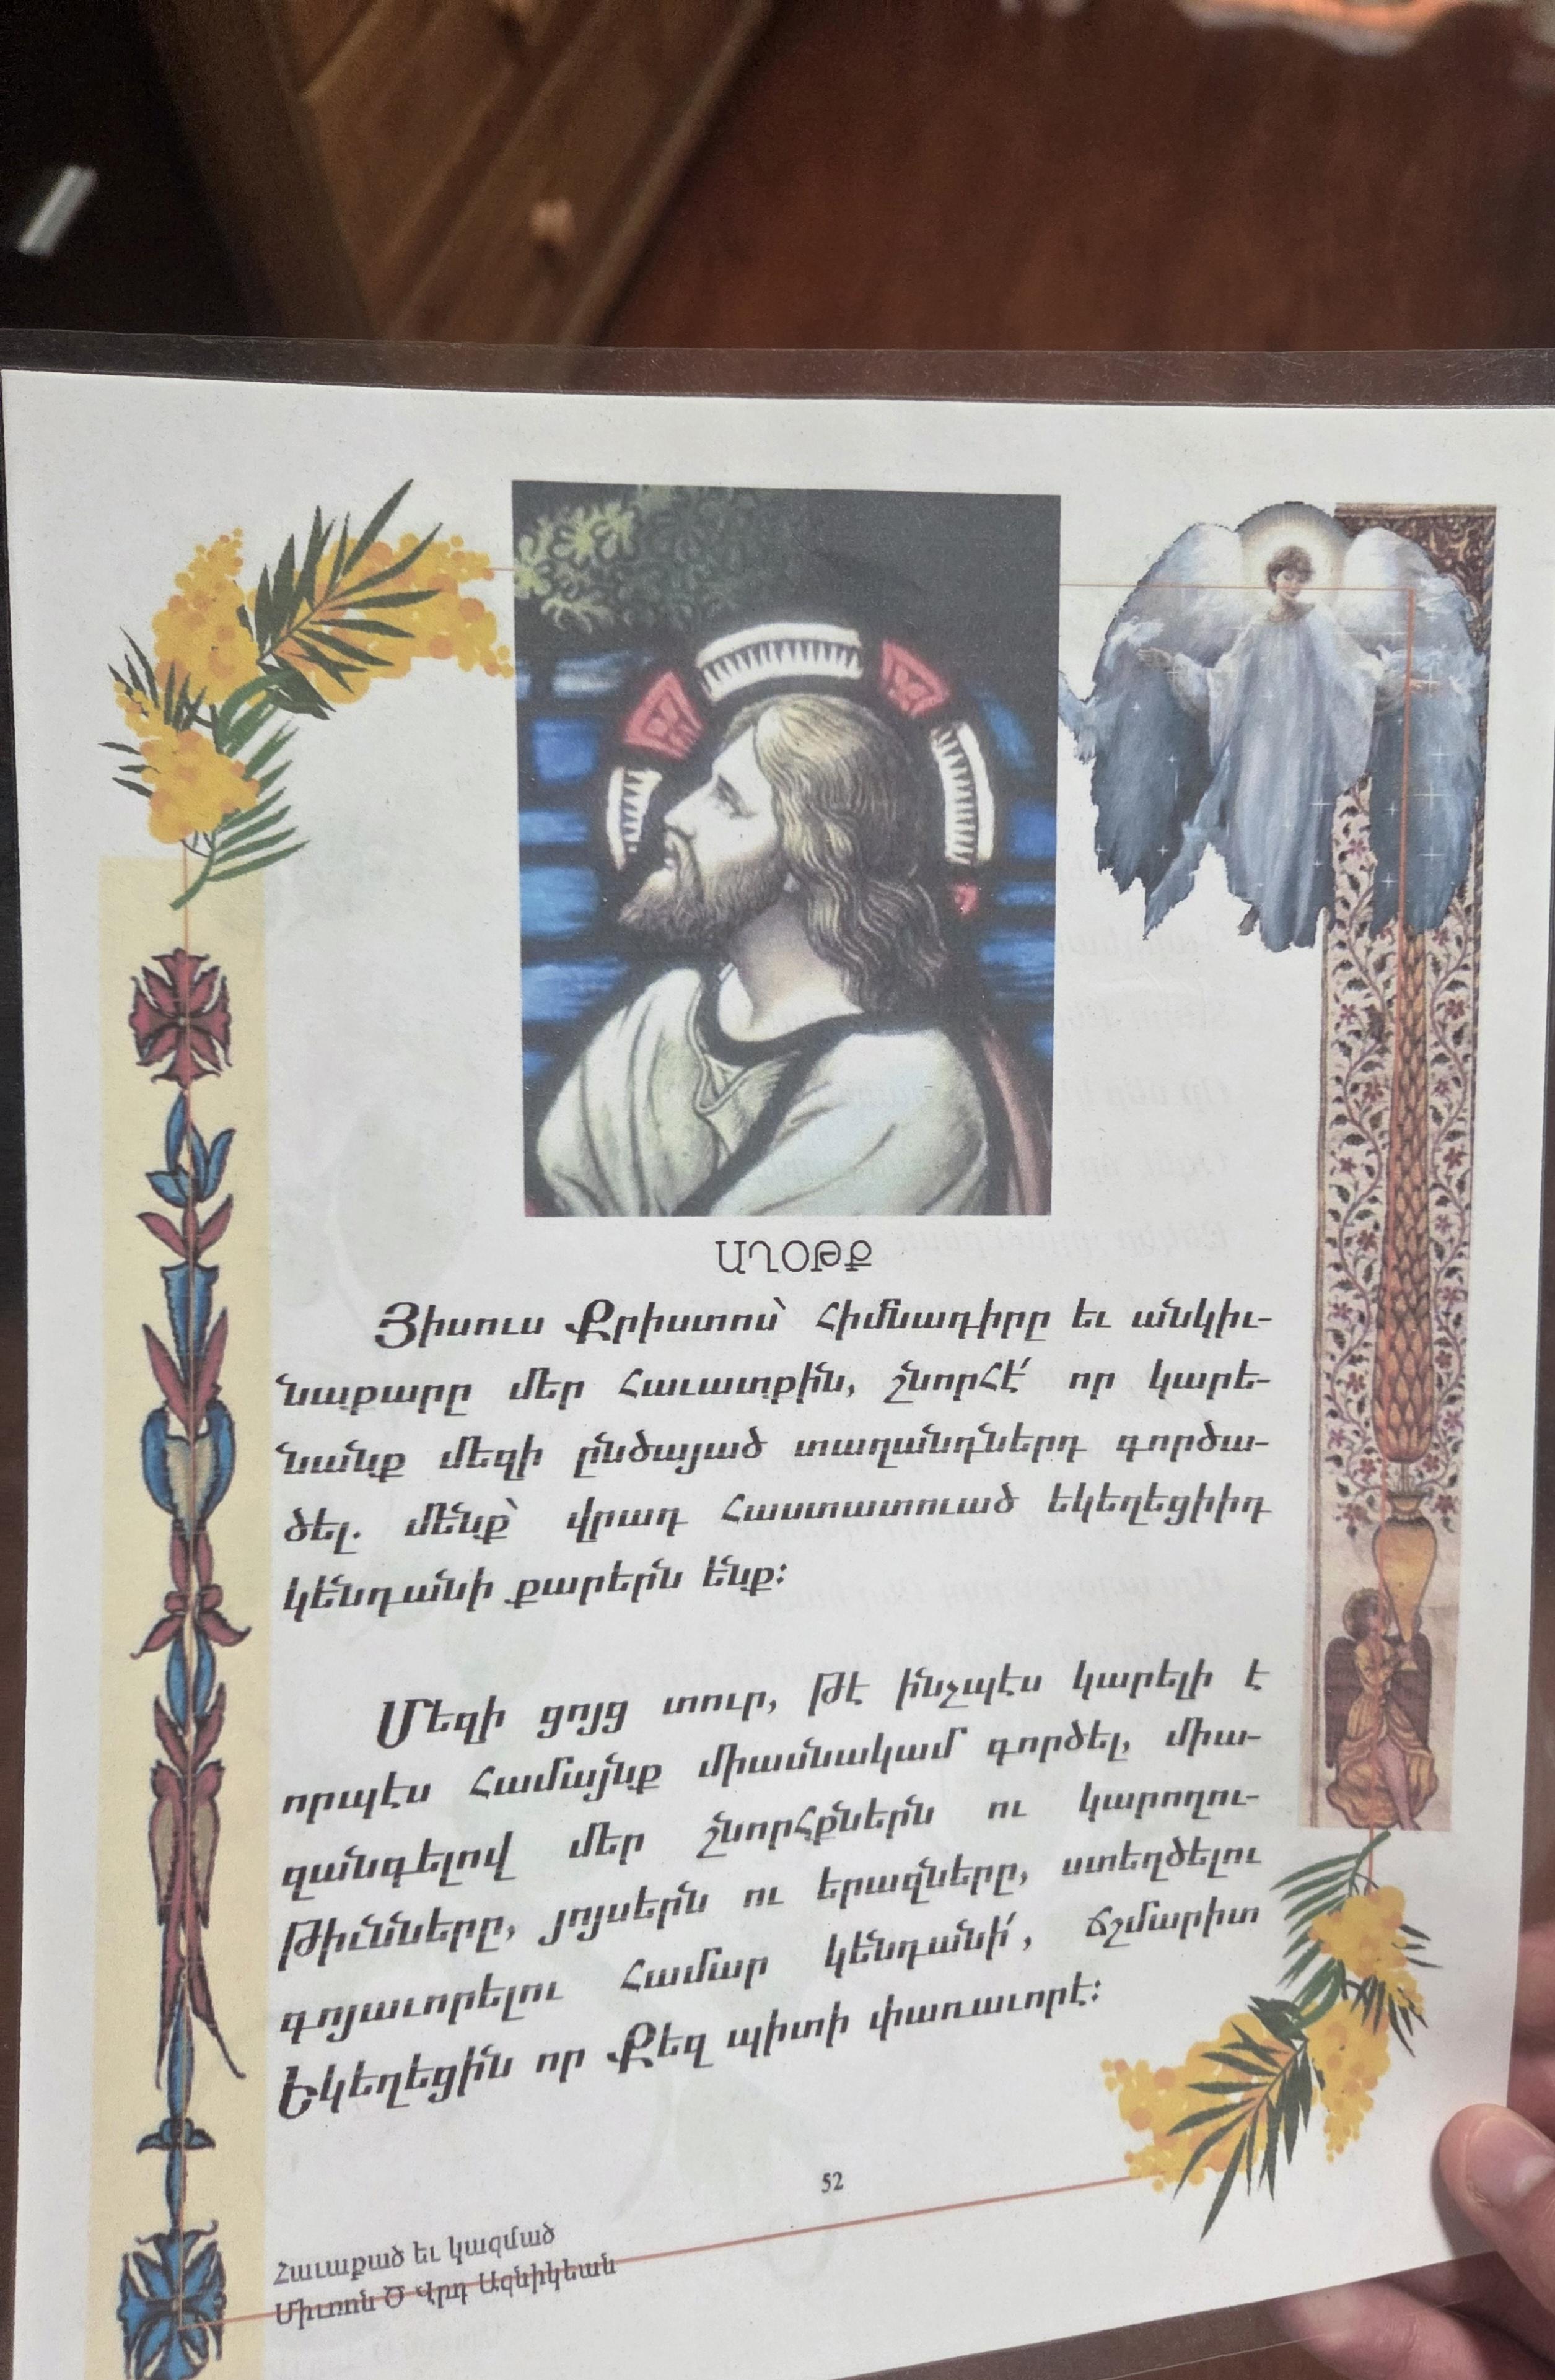 ԱՂՕԹՔ
Յիսուս Քրիստոս՝ հիմնադիրը եւ անկիւ-
նաքարը մեր հաւատքին, շնորհէ՛ որ կարե-
նանք մեզի ընծայած տաղանդներդ գործա-
ծել. մենք՝ վրադ հաստատուած եկեղեցիիդ
կենդանի քարերն ենք:
Մեզի ցոյց տուր, թէ ինչպէս կարելի է
որպէս համայնք միասնակամ գործել, միա-
զանգելով մեր շնորհքներն ու կարողու-
թիւնները, յոյսերն ու երազները, ստեղծելու
գոյաւորելու համար կենդանի՛, ճշմարիտ
Եկեղեցին որ Քեզ պիտի փառաւորէ:
52
Հաւաքած եւ կազմած
Միւռոն Ծ Վրդ Ազնիկեան